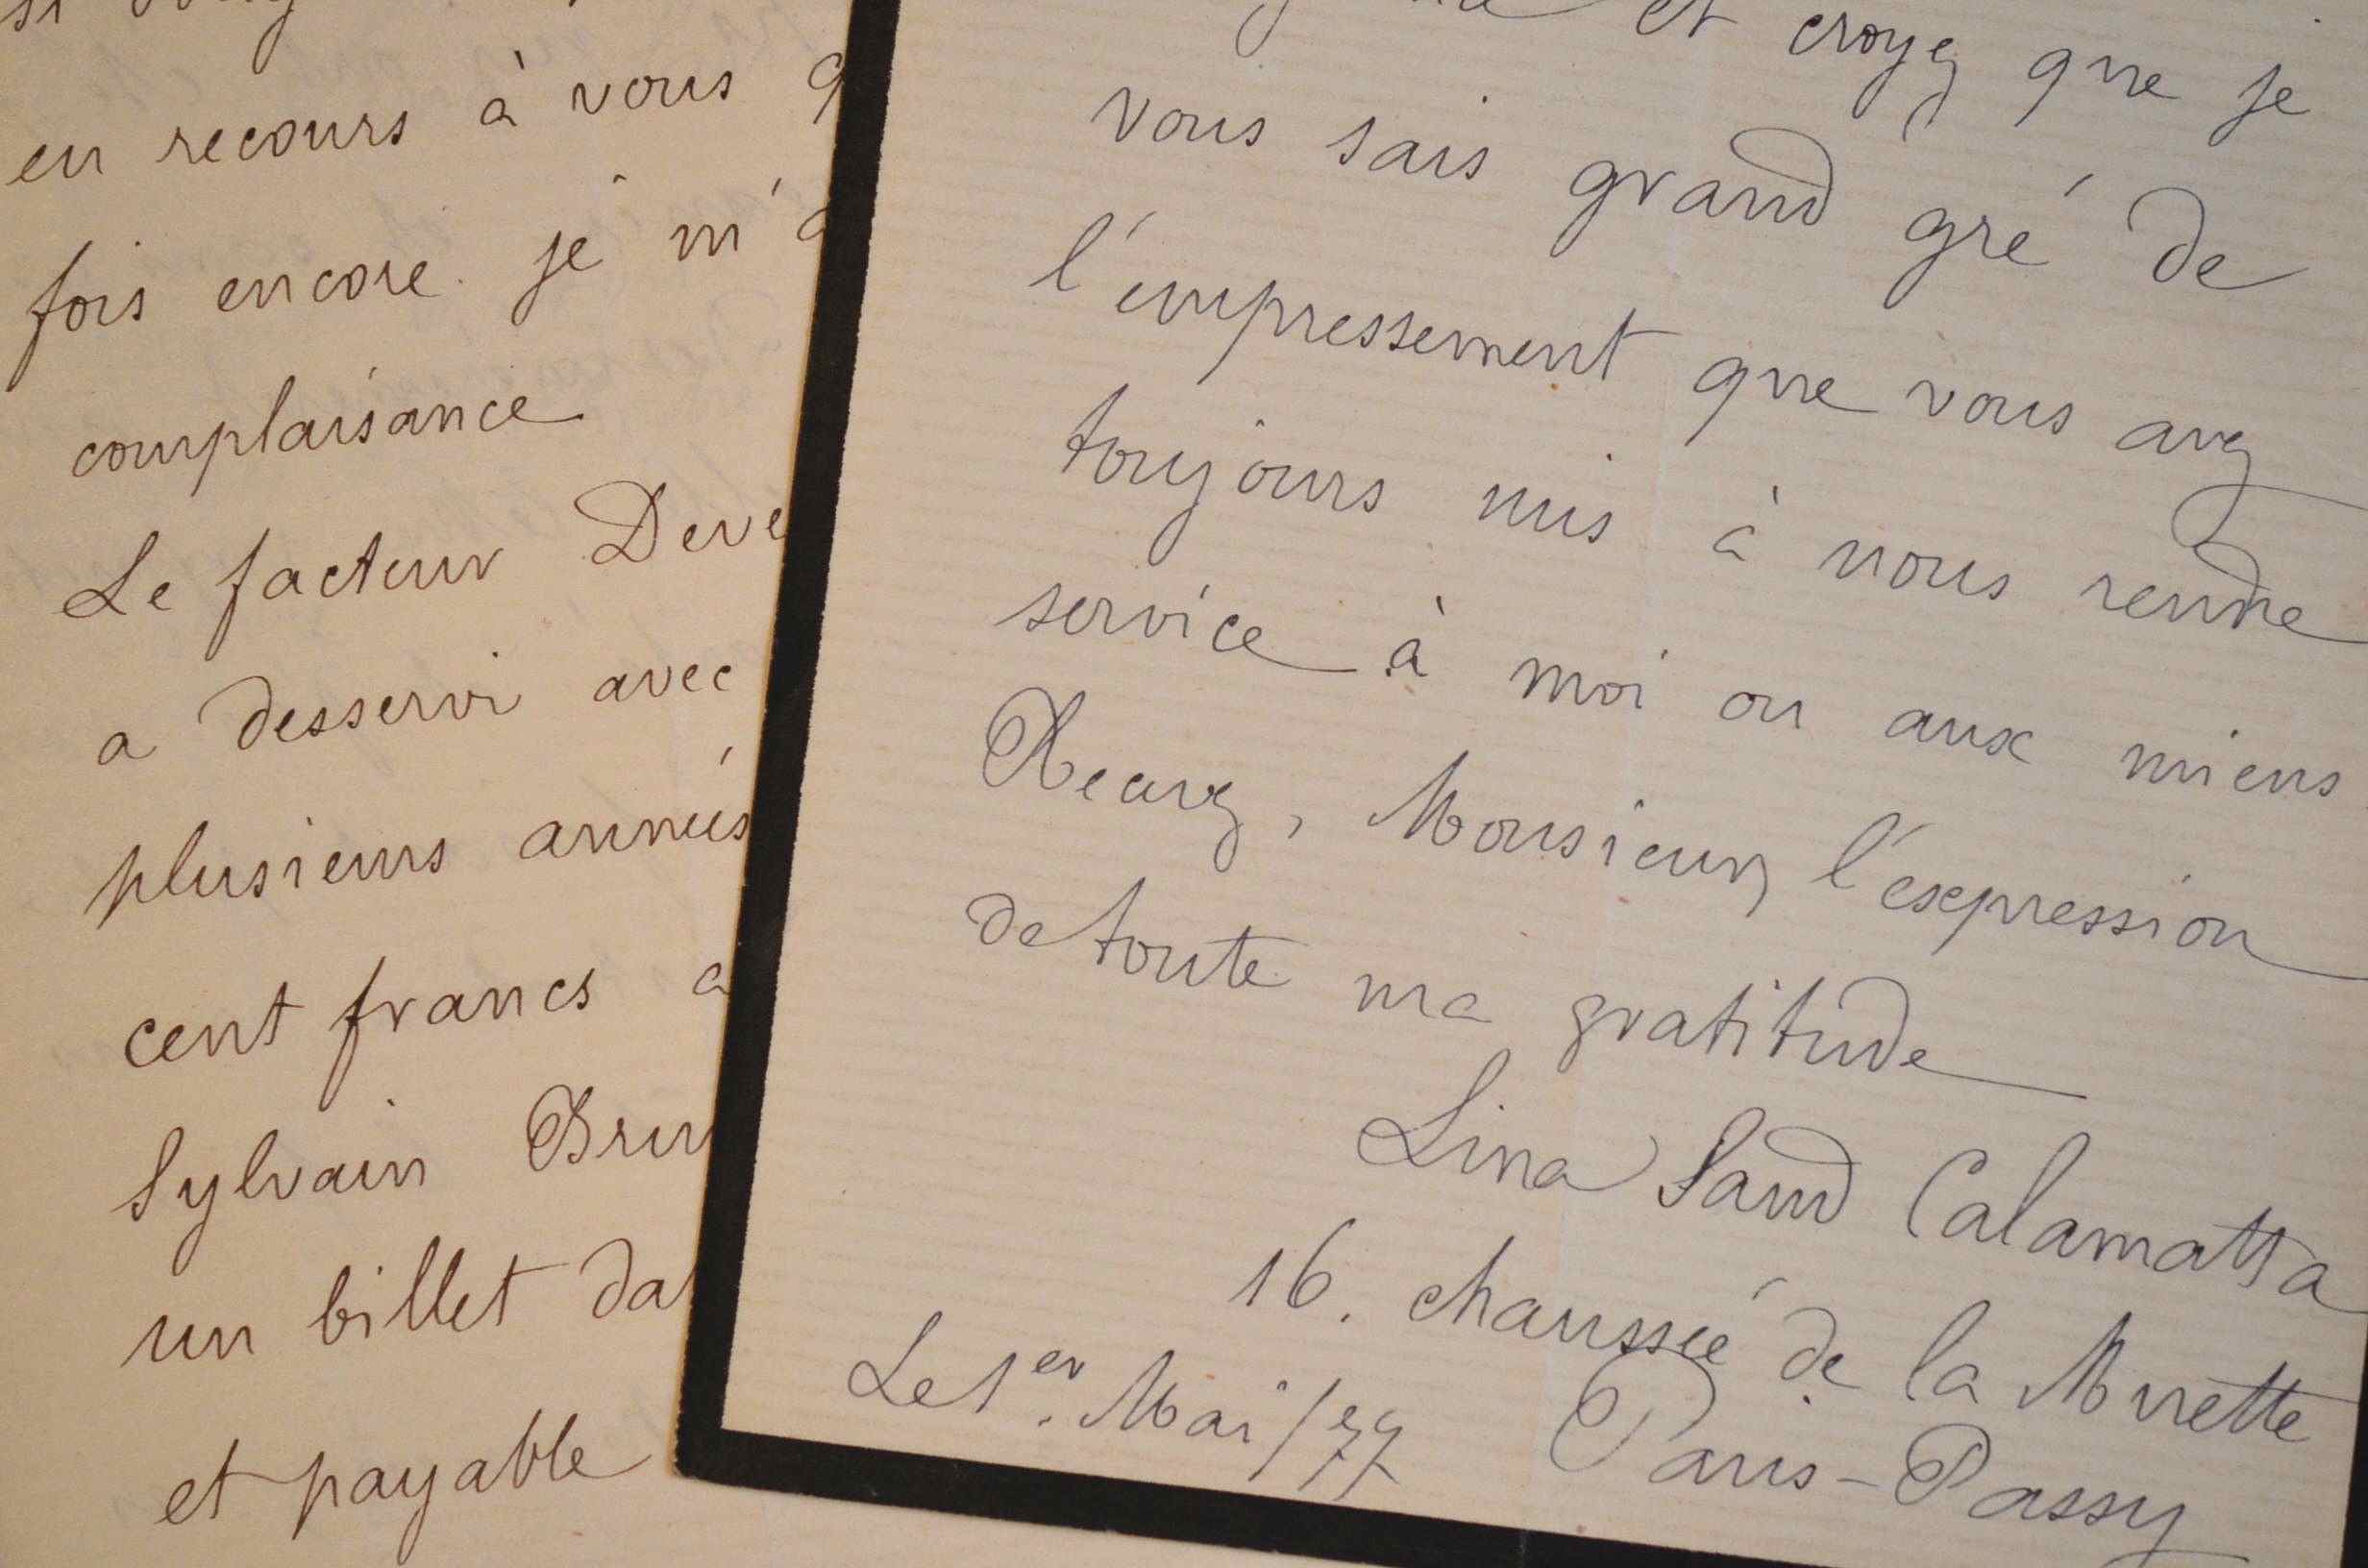 en recours à vous
fois encore je m'
complaisance
Le facteur Deve
a desservi avec
plusieurs années
cent francs
Sylvain Brun
un billet da
et payable
et croyez que je
vous sais grand gré de
l'empressement que vous avez
toujours mis à nous rendre
service à moi ou aux miens
Recevez, Monsieur, l'expression
de toute ma gratitude
Lina Sand Calamatta
16. chaussée de la Muette
Paris-Passy
Le 1er. Mai/77